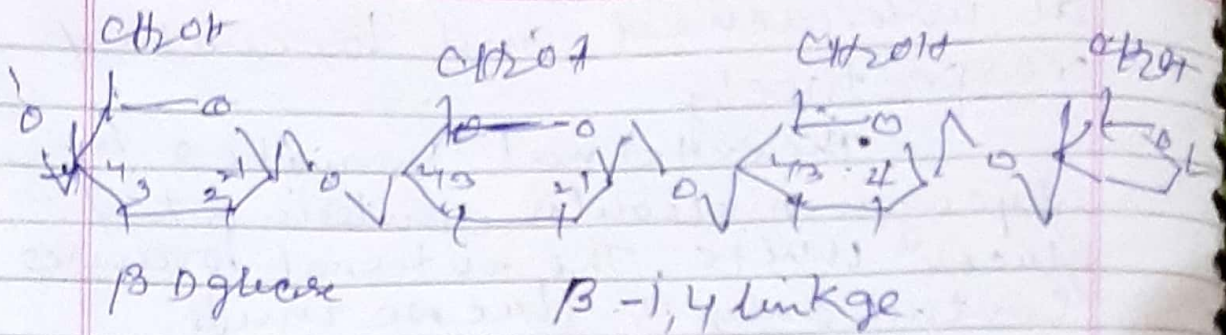 CH2OH CH2OH CH2OH CH2OH
O O O O O
4 1 O 4 1 O 4 O
3 2 3 2 3 2
β D glucose β-1,4 linkge